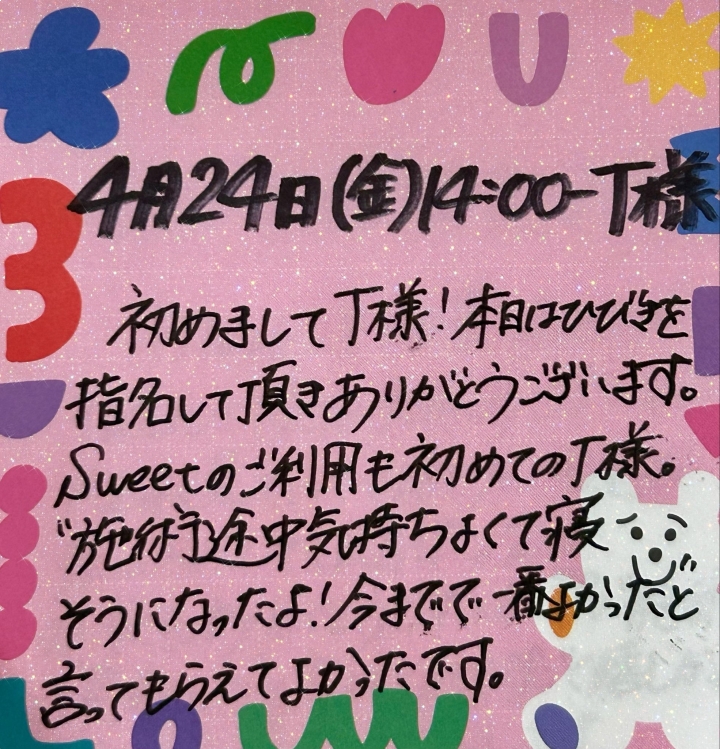 4月24日(金)14:00- T様
初めましてT様！本日はひびきを
指名して頂きありがとうございます。
Sweetのご利用も初めてのT様。
"施術途中気持ちよくて寝
そうになったよ！今までで一番よかった"と
言ってもらえてよかったです。